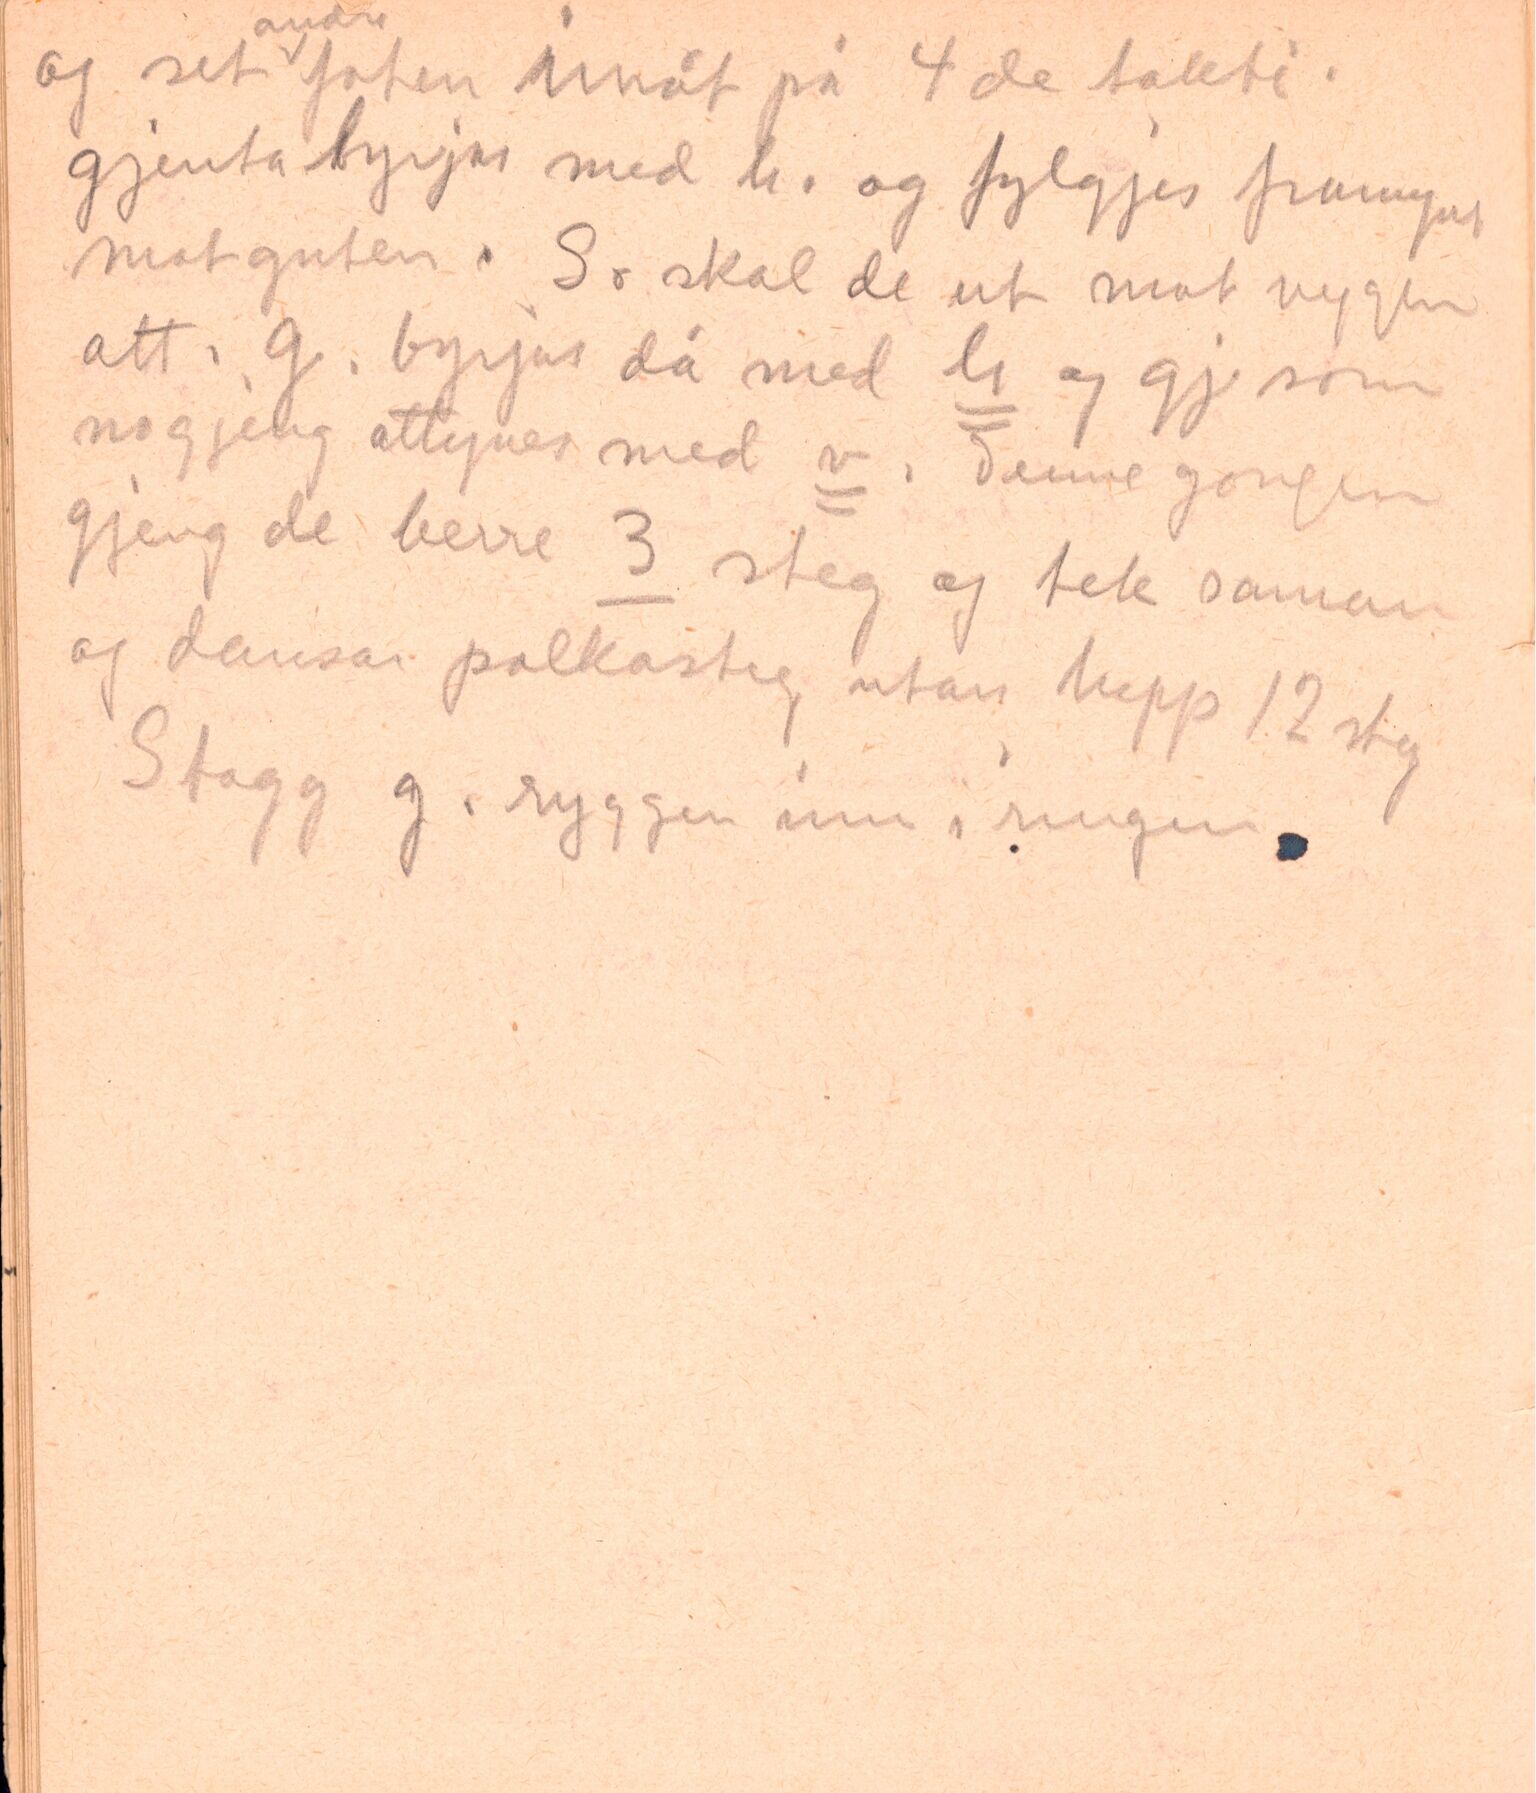 og set andre foten innåt på 4de takti.
gjenta byrjar med h. og fylgjes framyver
mot guten. So skal de ut mot veggen
att. G. byrjar då med h og gj som
no gjeng attyver med v. Denne gongen
gjeng de berre 3 steg og tek saman
og dansar polkasteg, utan hopp 12 steg
Stogg g. ryggen inn i ringen.